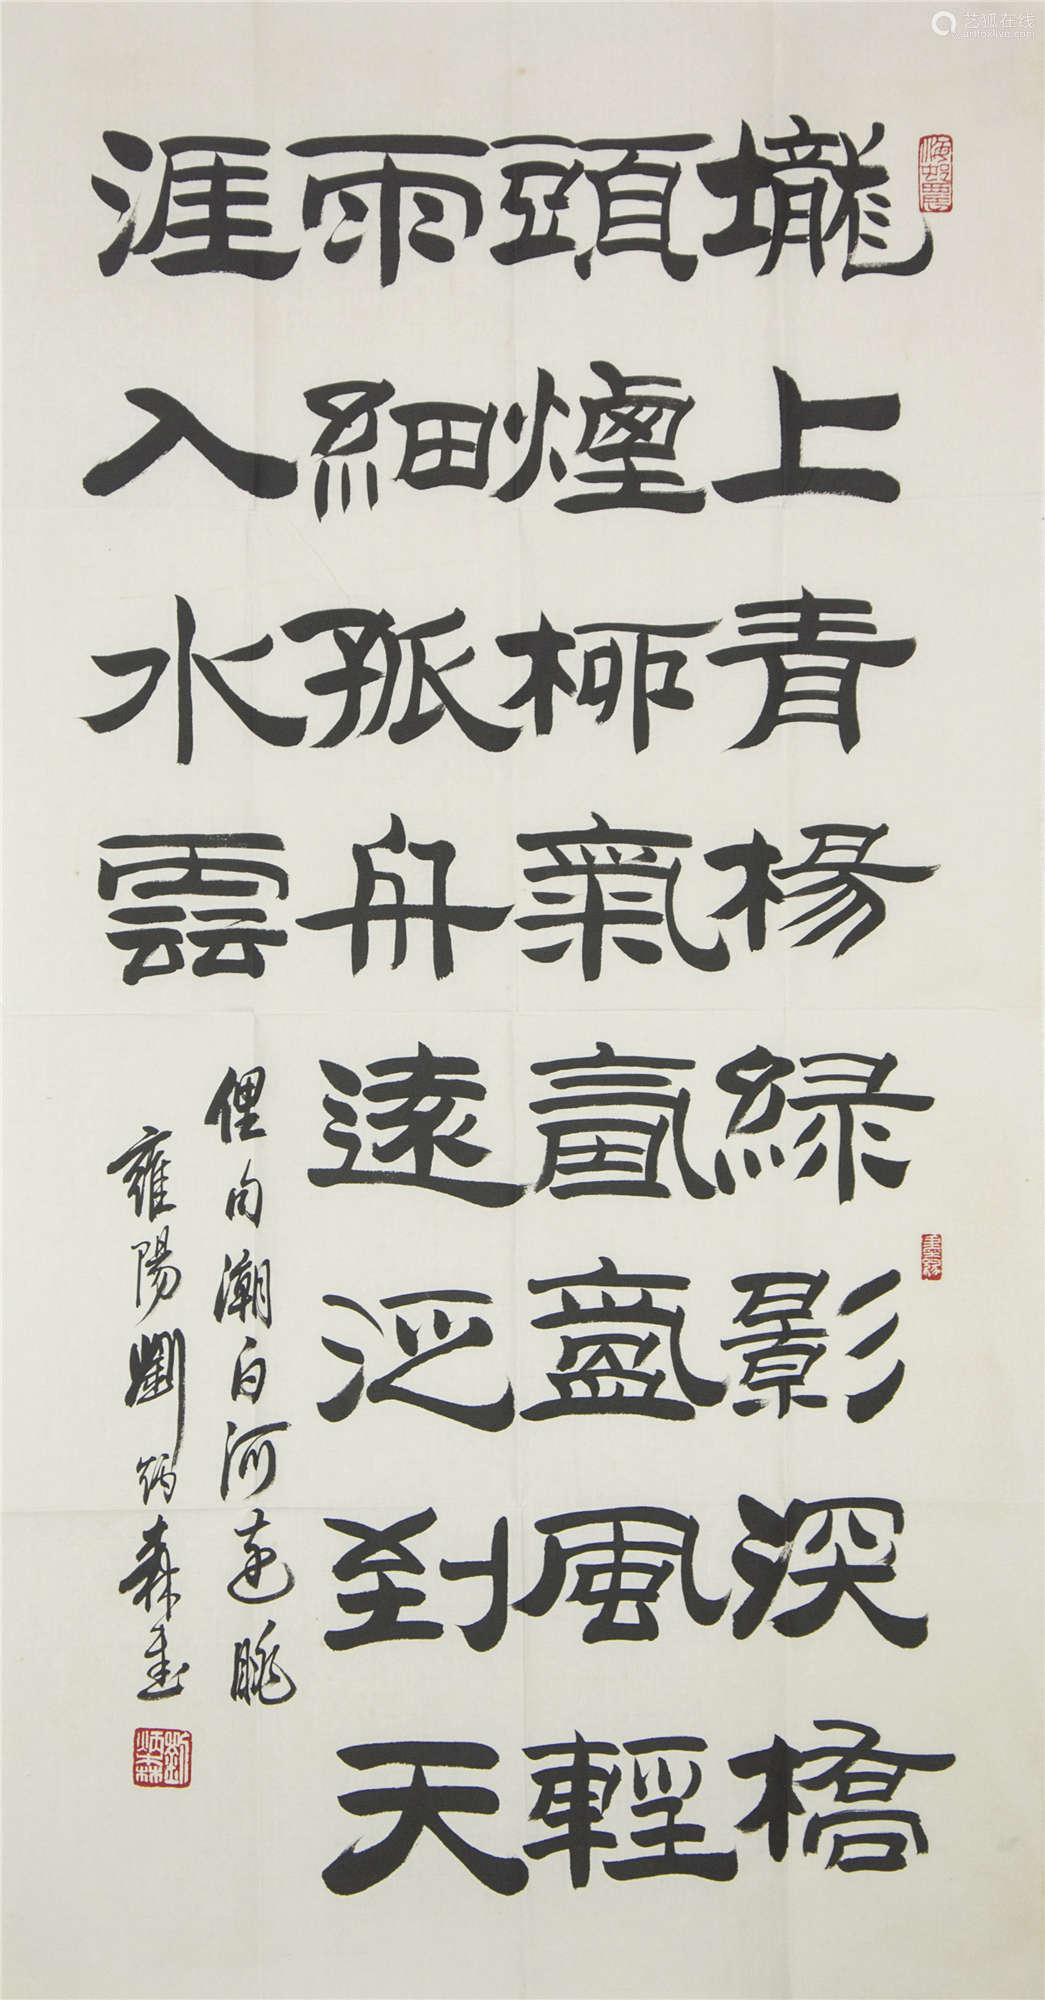 壠上青楊緑影深橋
頭煙柳氣氤氳風輕
雨細孤舟遠泛到天
涯入水雲
俚句潮白河遠眺
雍陽劉炳森書
劉炳森
艺狐在线
artfoxlive.com